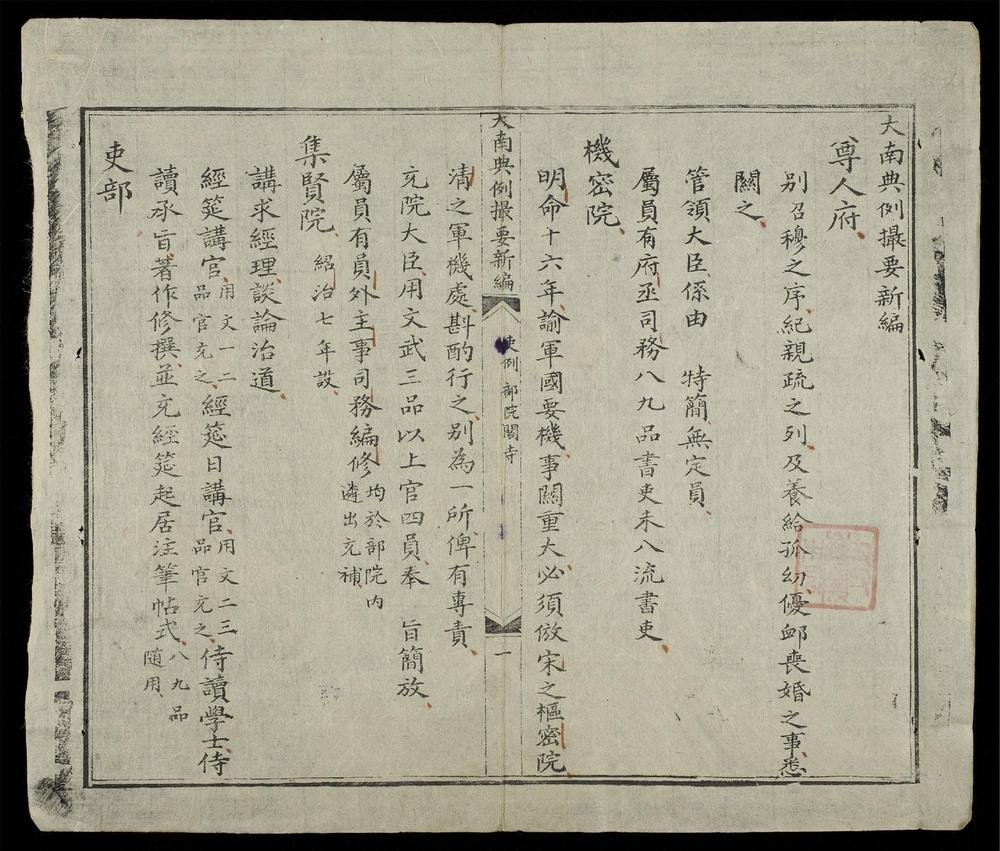 大南典例撮要新編
尊人府
別召穆之序紀親疏之列及養給孤幼優䘏喪婚之事悉
關之
管領大臣係由　特簡無定員
屬員有府丞司務八九品書吏未八流書吏
機密院
明命十六年諭軍國要機事關重大必須倣宋之樞密院
大南典例撮要新編　吏例　部院閣寺　一
清之軍機處斟酌行之別為一所俾有專責
充院大臣用文武三品以上官四員奉　旨簡放
屬員有員外主事司務編修均於部院內遴出充補
集賢院　紹治七年設
講求經理談論治道
經筵講官用文一二品官充之經筵日講官用文二三品官充之侍讀學士侍
讀承旨著作修撰並充經筵起居注筆帖式八九品隨用
吏部